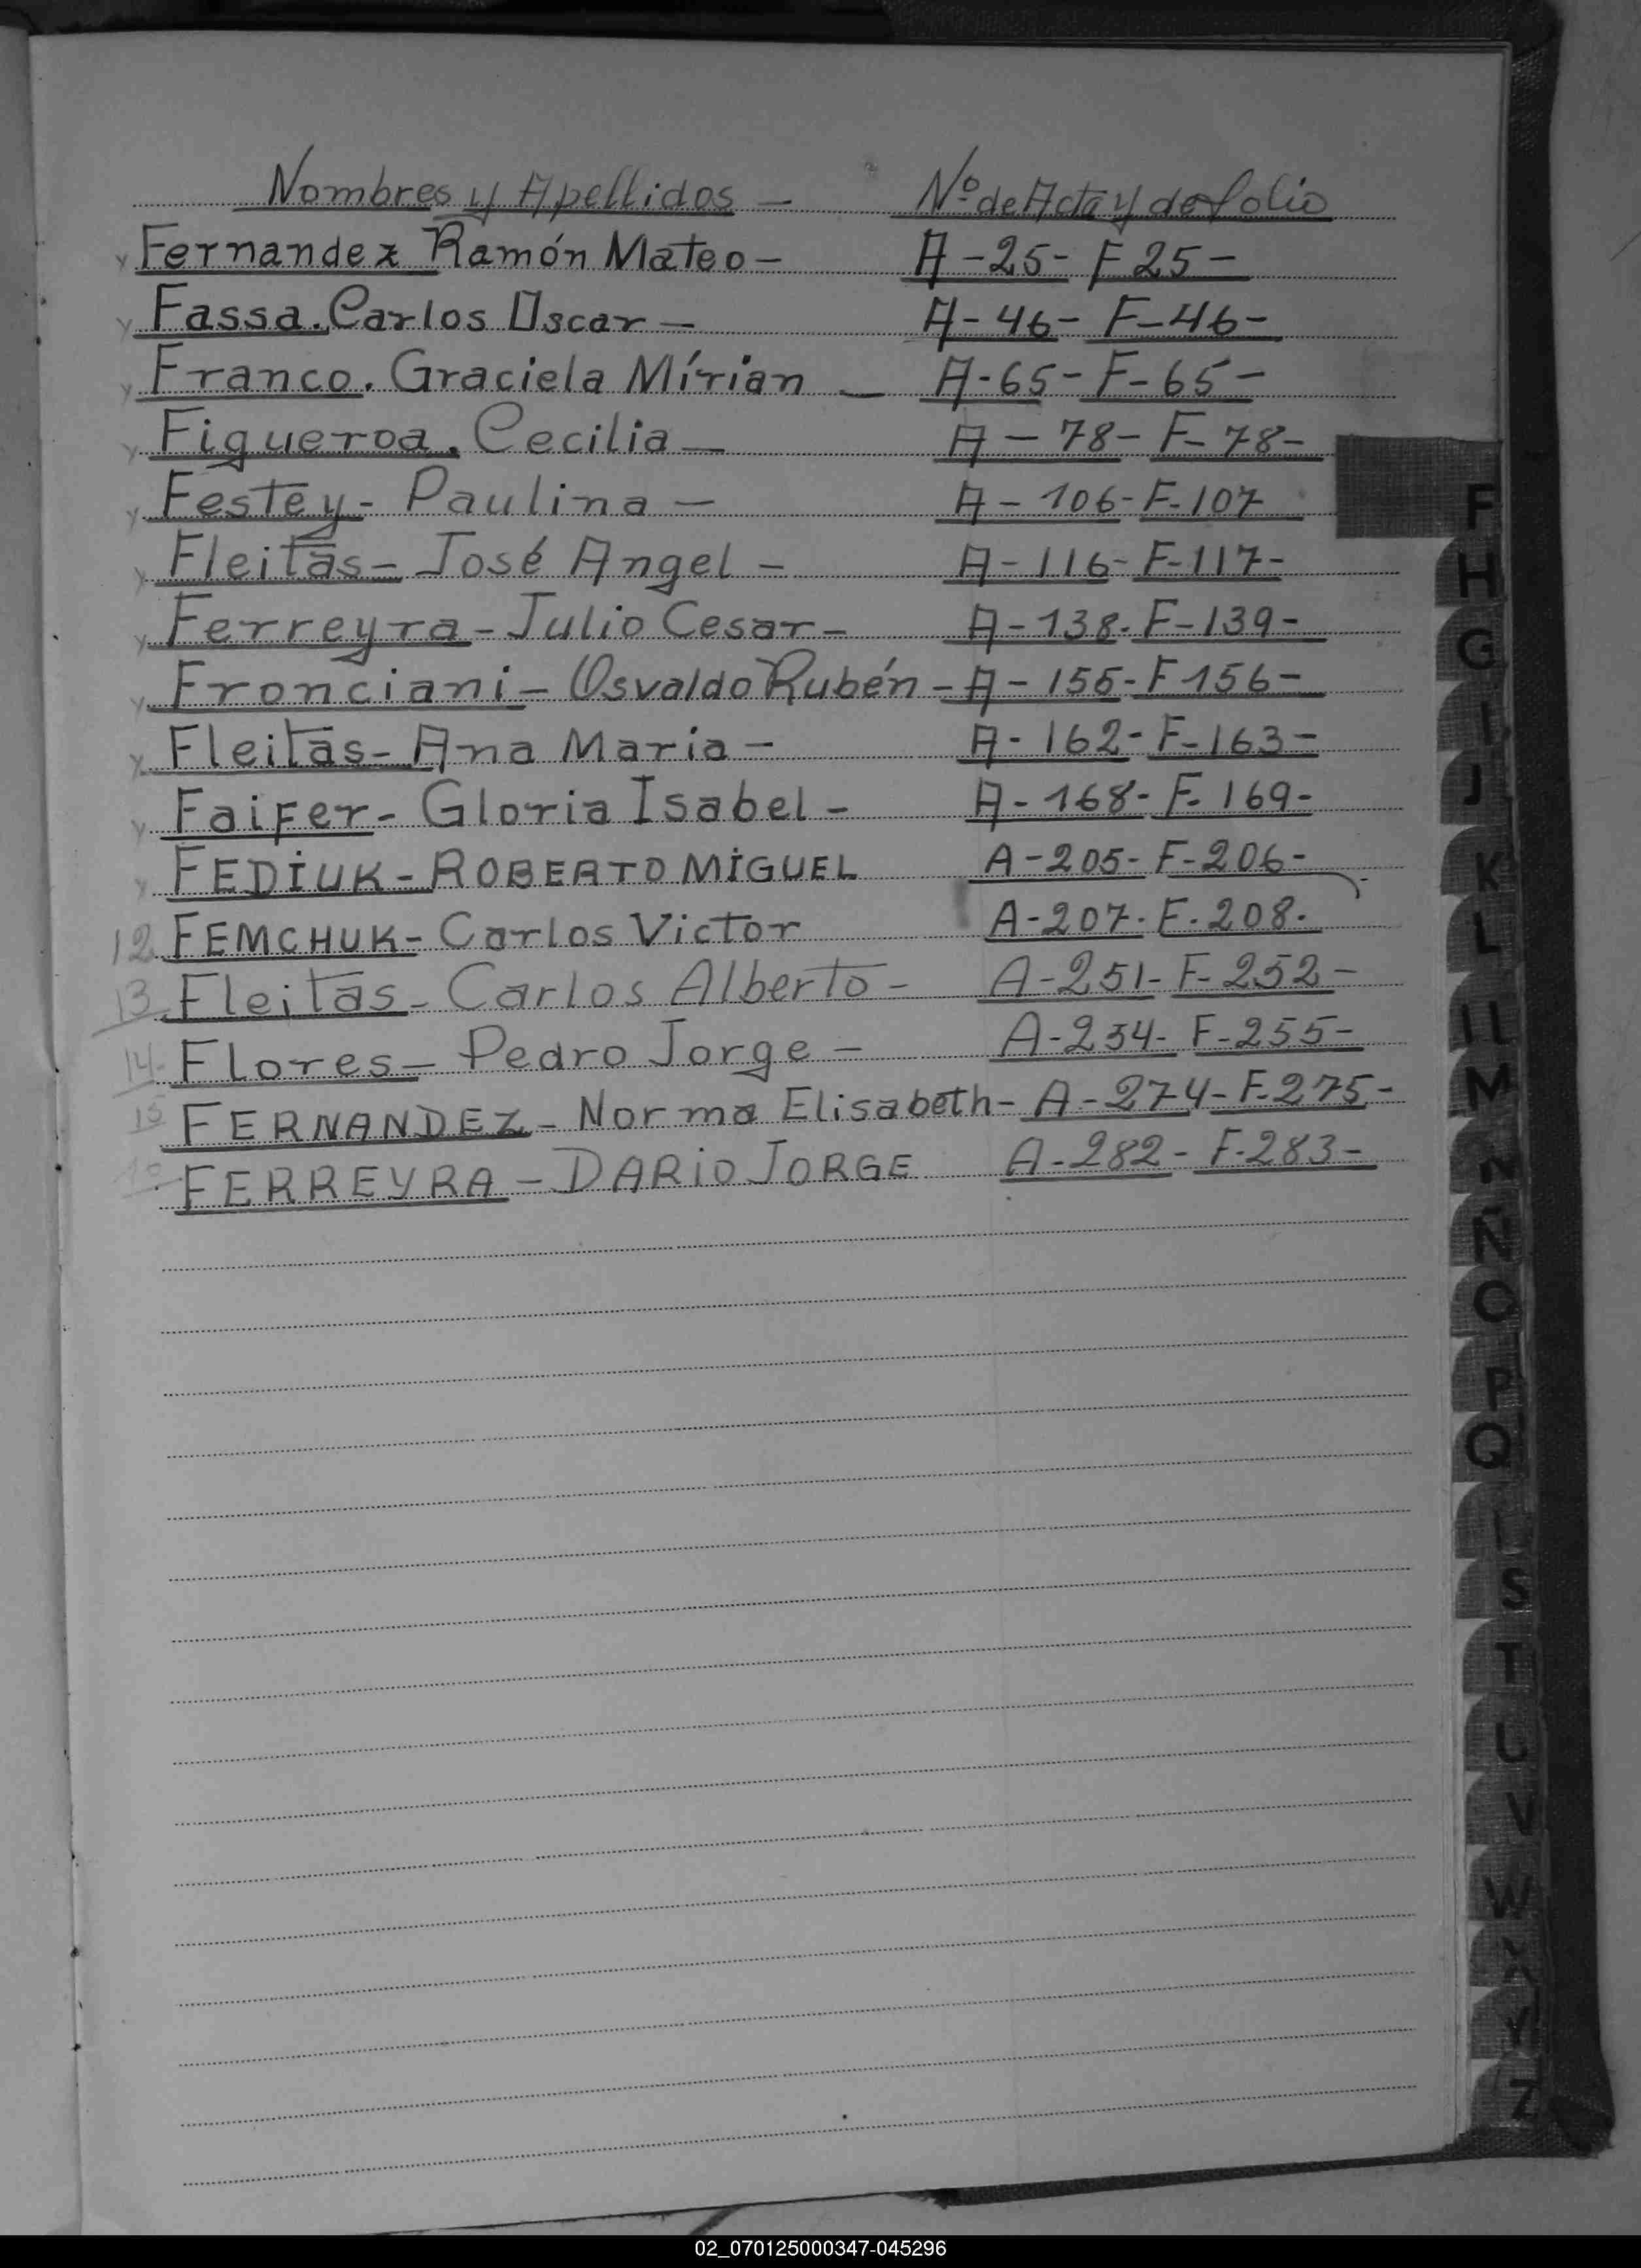 Nombres y Apellidos — Nº de Acta y de folio
Fernandez Ramón Mateo — A - 25 - F 25 -
Fassa. Carlos Oscar — A - 46 - F - 46 -
Franco. Graciela Mírian — A - 65 - F - 65 -
Figueroa. Cecilia — A - 78 - F - 78 -
Festey - Paulina — A - 106 - F - 107
Fleitas - José Angel — A - 116 - F - 117 -
Ferreyra - Julio Cesar — A - 138 - F - 139 -
Fronciani - Osvaldo Rubén - A - 155 - F 156 -
Fleitas - Ana Maria — A - 162 - F - 163 -
Faifer - Gloria Isabel - A - 168 - F - 169 -
FEDIUK - ROBERTO MIGUEL A - 205 - F - 206 -
12 FEMCHUK - Carlos Victor A - 207 - F - 208 -
13 Fleitas - Carlos Alberto - A - 251 - F - 252 -
14 - Flores - Pedro Jorge - A - 254 - F - 255 -
15 FERNANDEZ - Norma Elisabeth - A - 274 - F - 275 -
FERREYRA - DARIO JORGE A - 282 - F - 283 -
F
H
G
I
J
K
L
LL
M
N
Ñ
O
P
Q
S
T
U
V
W
Y
Z
02_070125000347-045296